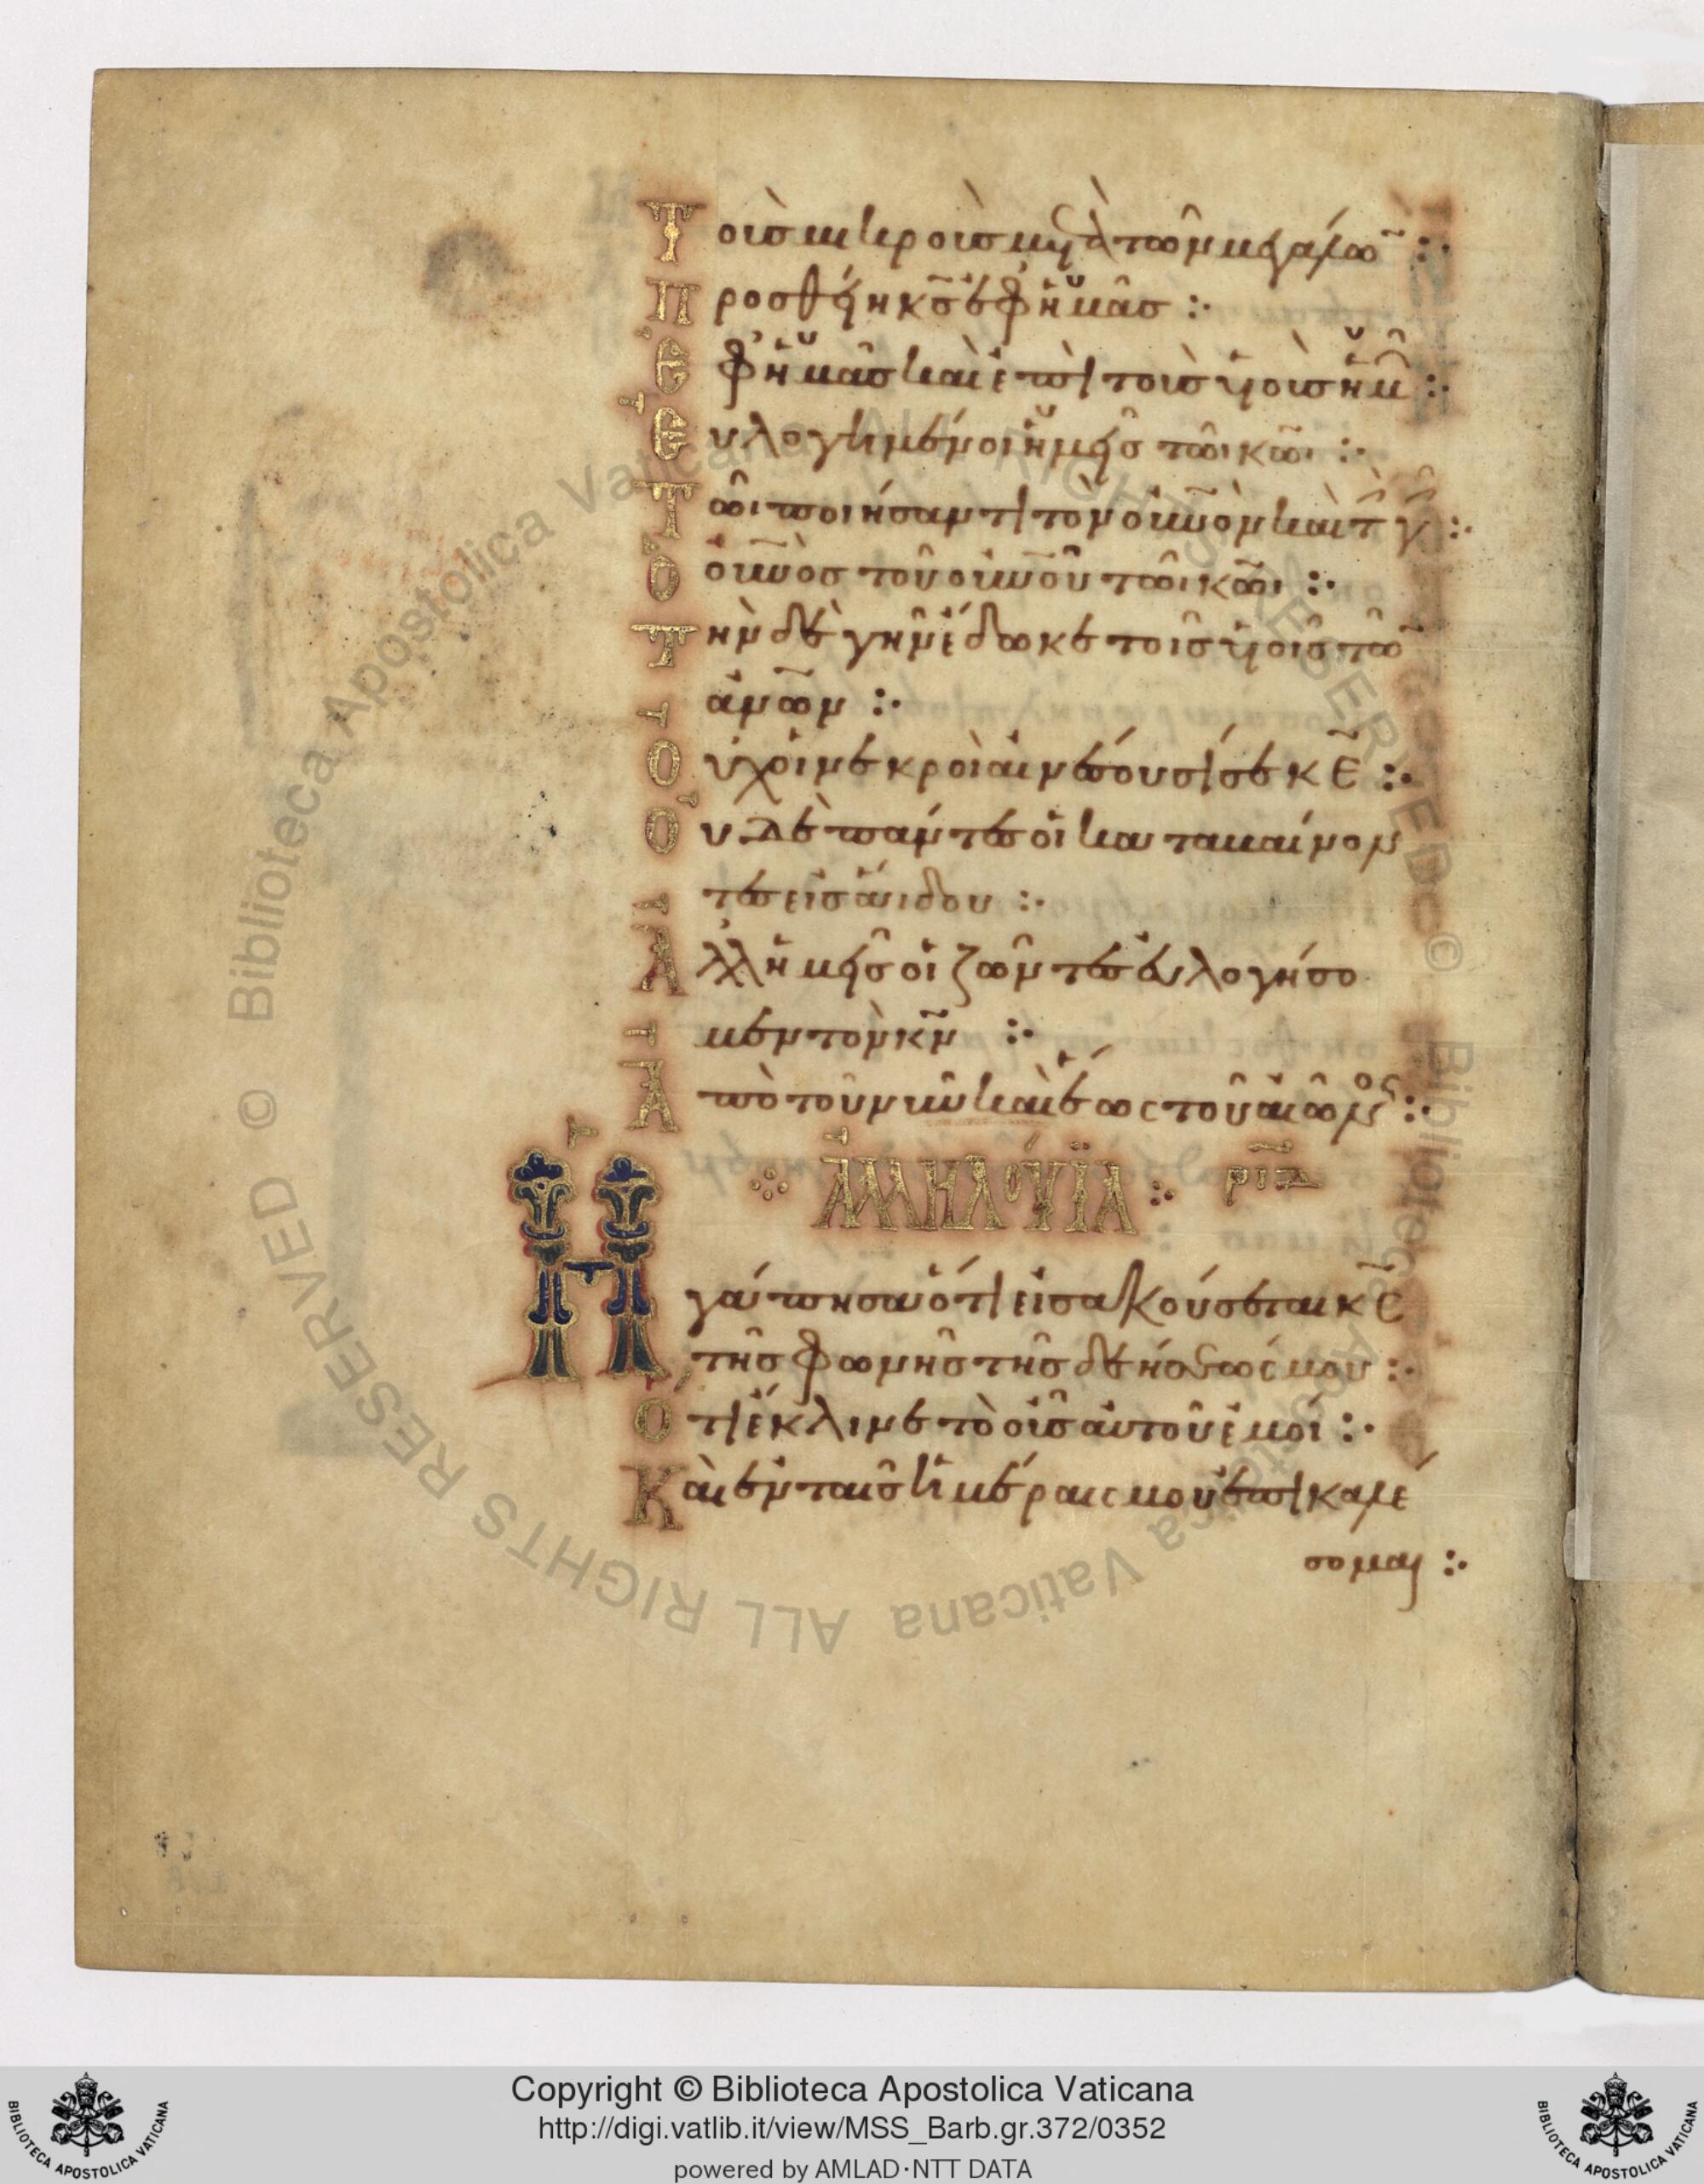 Τοῖς μικροῖς μετὰ τῶν μεγάλω̅ :·
Προσθείη κ̅ς ἐφ' ἡμᾶς :·
Ἐφ' ἡμᾶς καὶ ἐπὶ τοὺς υἱοὺς ἡμ̅ :·
Εὐλογημένοι ἡμεῖς τῶι κ̅ωι :·
Τῶι ποιήσαντι τὸν οὐ̅νὸν καὶ τ̅ γ̅ :·
Ὁ οὐ̅νὸς τοῦ οὐ̅νοῦ τῶι κ̅ωι :·
Τὴν δὲ γῆν ἔδωκε τοῖς υἱοῖς τῶ̅
ἀν̅ων :·
Οὐχ οἱ νεκροὶ αἰνέσουσί σε κ̅ε :·
Οὐδὲ πάντες οἱ καταβαίνον
τες εἰς ἅιδου :·
Ἀλλ' ἡμεῖς οἱ ζῶντες εὐλογήσο
μεν τὸν κ̅ν :·
Ἀπὸ τοῦ νῦν καὶ ἕως τοῦ αἰῶνος :·
ἈΛΛΗΛΟΎΪΑ : ριδ
Ἠγάπησα ὅτι εἰσακούσεται κ̅ς
τῆς φωνῆς τῆς δεήσεώς μου :·
Ὅτι ἔκλινε τὸ οὖς αὐτοῦ ἐμοί :·
Καὶ ἐν ταῖς ἡμέραις μου ἐπικαλέ
σομαι :·
Copyright © Biblioteca Apostolica Vaticana
http://digi.vatlib.it/view/MSS_Barb.gr.372/0352
powered by AMLAD·NTT DATA
BIBLIOTECA APOSTOLICA VATICANA
BIBLIOTECA APOSTOLICA VATICANA
© Biblioteca Apostolica Vaticana ALL RIGHTS RESERVED
© Biblioteca Apostolica Vaticana ALL RIGHTS RESERVED